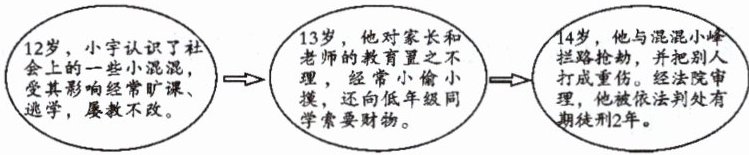 12岁，小宇认识了社
会上的一些小混混，
受其影响经常旷课、
逃学，屡教不改。
13岁，他对家长和
老师的教育置之不
理，经常小偷小
摸，还向低年级同
学索要财物。
14岁，他与混混小峰
拦路抢劫，并把别人
打成重伤。经法院审
理，他被依法判处有
期徒刑2年。